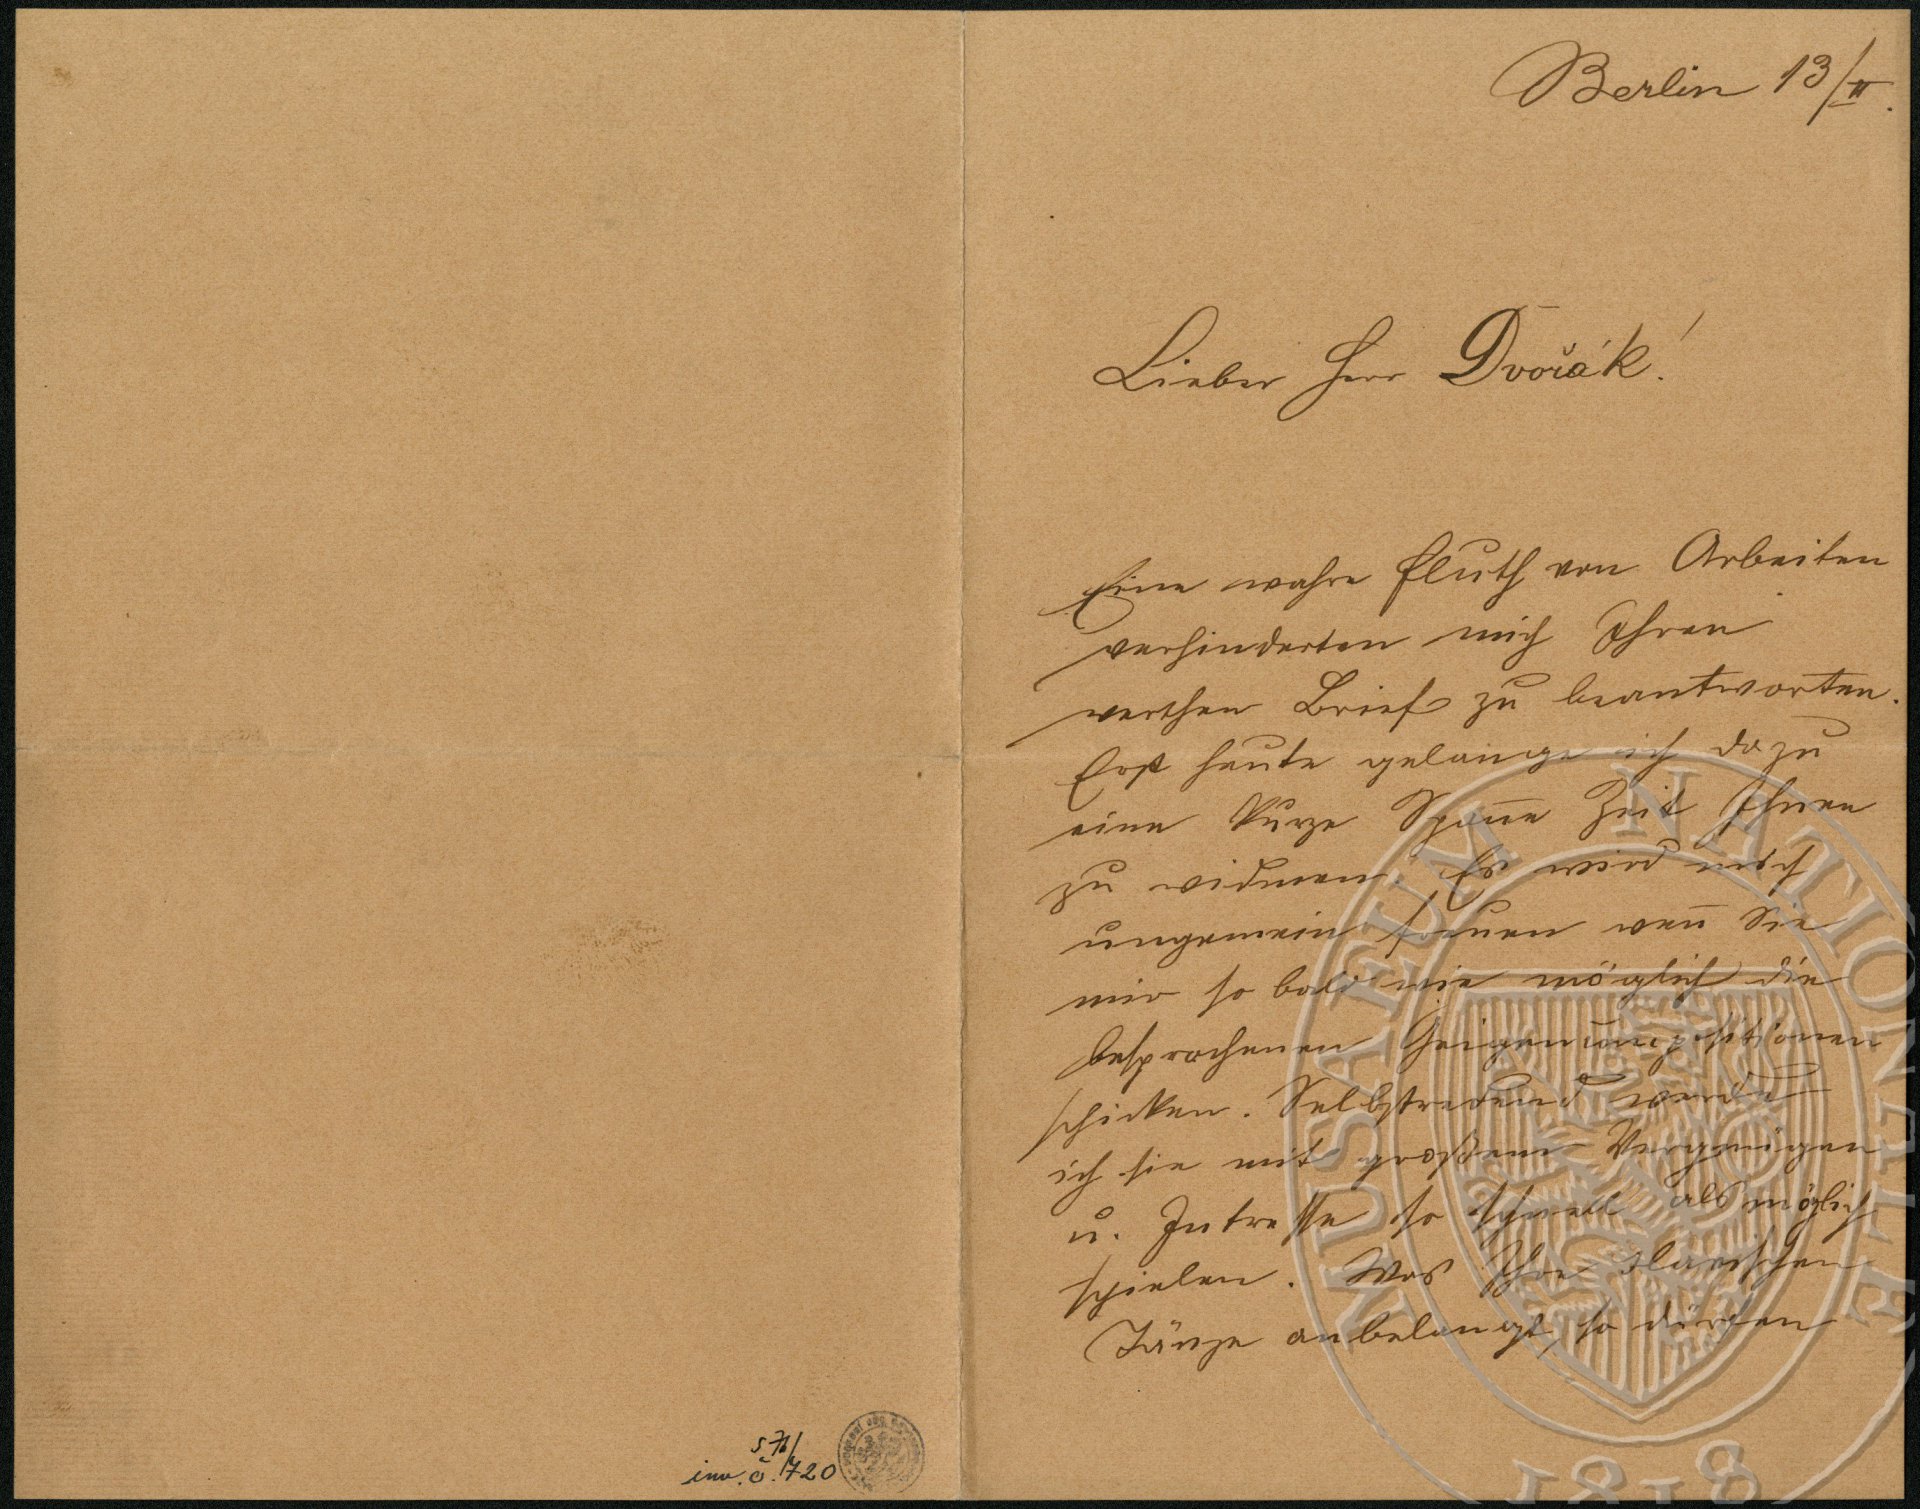 Berlin 13/II.
Lieber Herr Dvořák!
Eine wahre Fluth von Arbeiten
verhinderten mich Ihren
werthen Brief zu beantworten.
Erst heute gelange ich dazu
eine kurze Spañe Zeit Ihnen
zu widmen. Es wird mich
ungemein freuen weñ Sie
mir so bald wie möglich die
besprochenen Geigencompositionen
schicken. Selbstredend werde
ich sie mit großem Vergnügen
u. Intresse so schnell als möglich
spielen. Was Ihre slavischen
Tänze anbelangt, so dürfen
inv. č. 720
MUSAEUM NATIONALE
1818